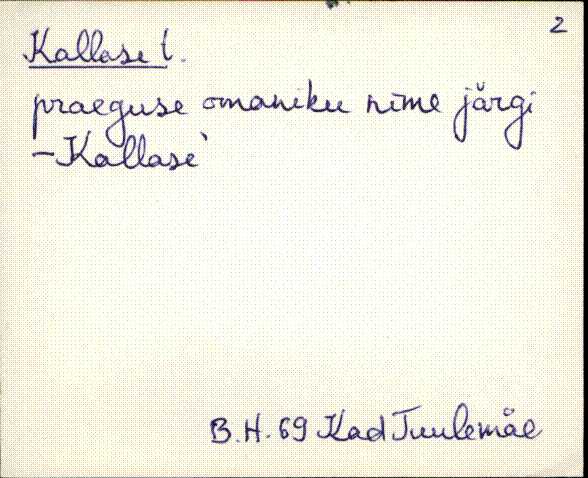 2
Kallase t.
praeguse omaniku nime järgi
- Kallase`
B.H. 69 Kad Tuulemäe